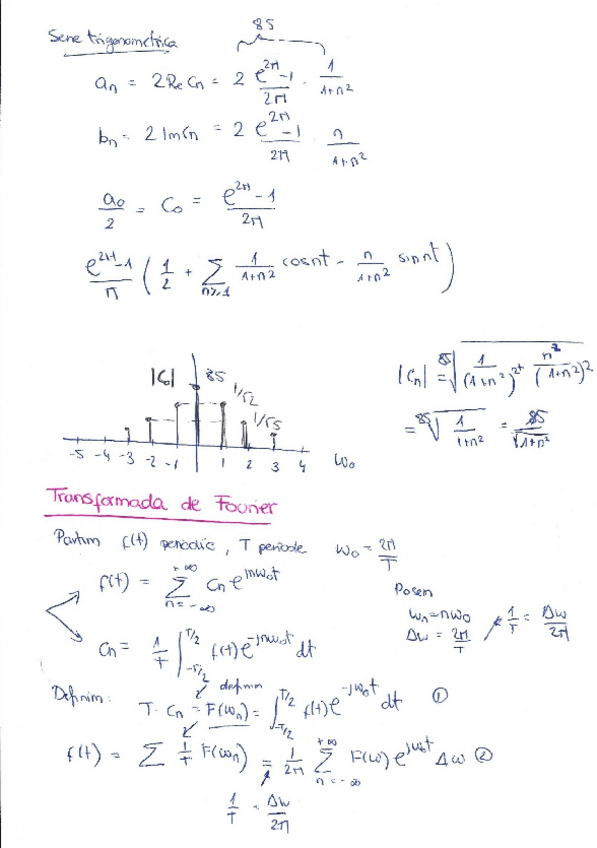 Serie trigonometrica
85
an = 2 Re Cn = 2 (e^{2π} - 1)/(2π) · 1/(1+n²)
bn = 2 Im Cn = 2 (e^{2π} - 1)/(2π) · n/(1+n²)
a0/2 = C0 = (e^{2π} - 1)/(2π)
(e^{2π} - 1)/π ( 1/2 + Σ_{n≥1} 1/(1+n²) cos nt - n/(1+n²) sin nt )
|C| 85 1/√2 1/√5
-5 -4 -3 -2 -1 1 2 3 4 W0
|Cn| = 85 √( 1/(1+n²)² + n²/(1+n²)² )
= 85 √( 1/(1+n²) ) = 85/√(1+n²)
Transformada de Fourier
Partim f(t) periòdic, T periode W0 = 2π/T
f(t) = Σ_{n=-∞}^{+∞} Cn e^{jnW0t}
Cn = 1/T ∫_{-T/2}^{T/2} f(t) e^{-jnW0t} dt
Posem
Wn = nW0
ΔW = 2π/T 1/T = ΔW/2π
Definim: definim
T · Cn = F(Wn) = ∫_{-T/2}^{T/2} f(t) e^{-jW0t} dt ①
f(t) = Σ 1/T F(Wn) = 1/2π Σ_{n=-∞}^{+∞} F(W) e^{jW0t} ΔW ②
1/T = ΔW/2π